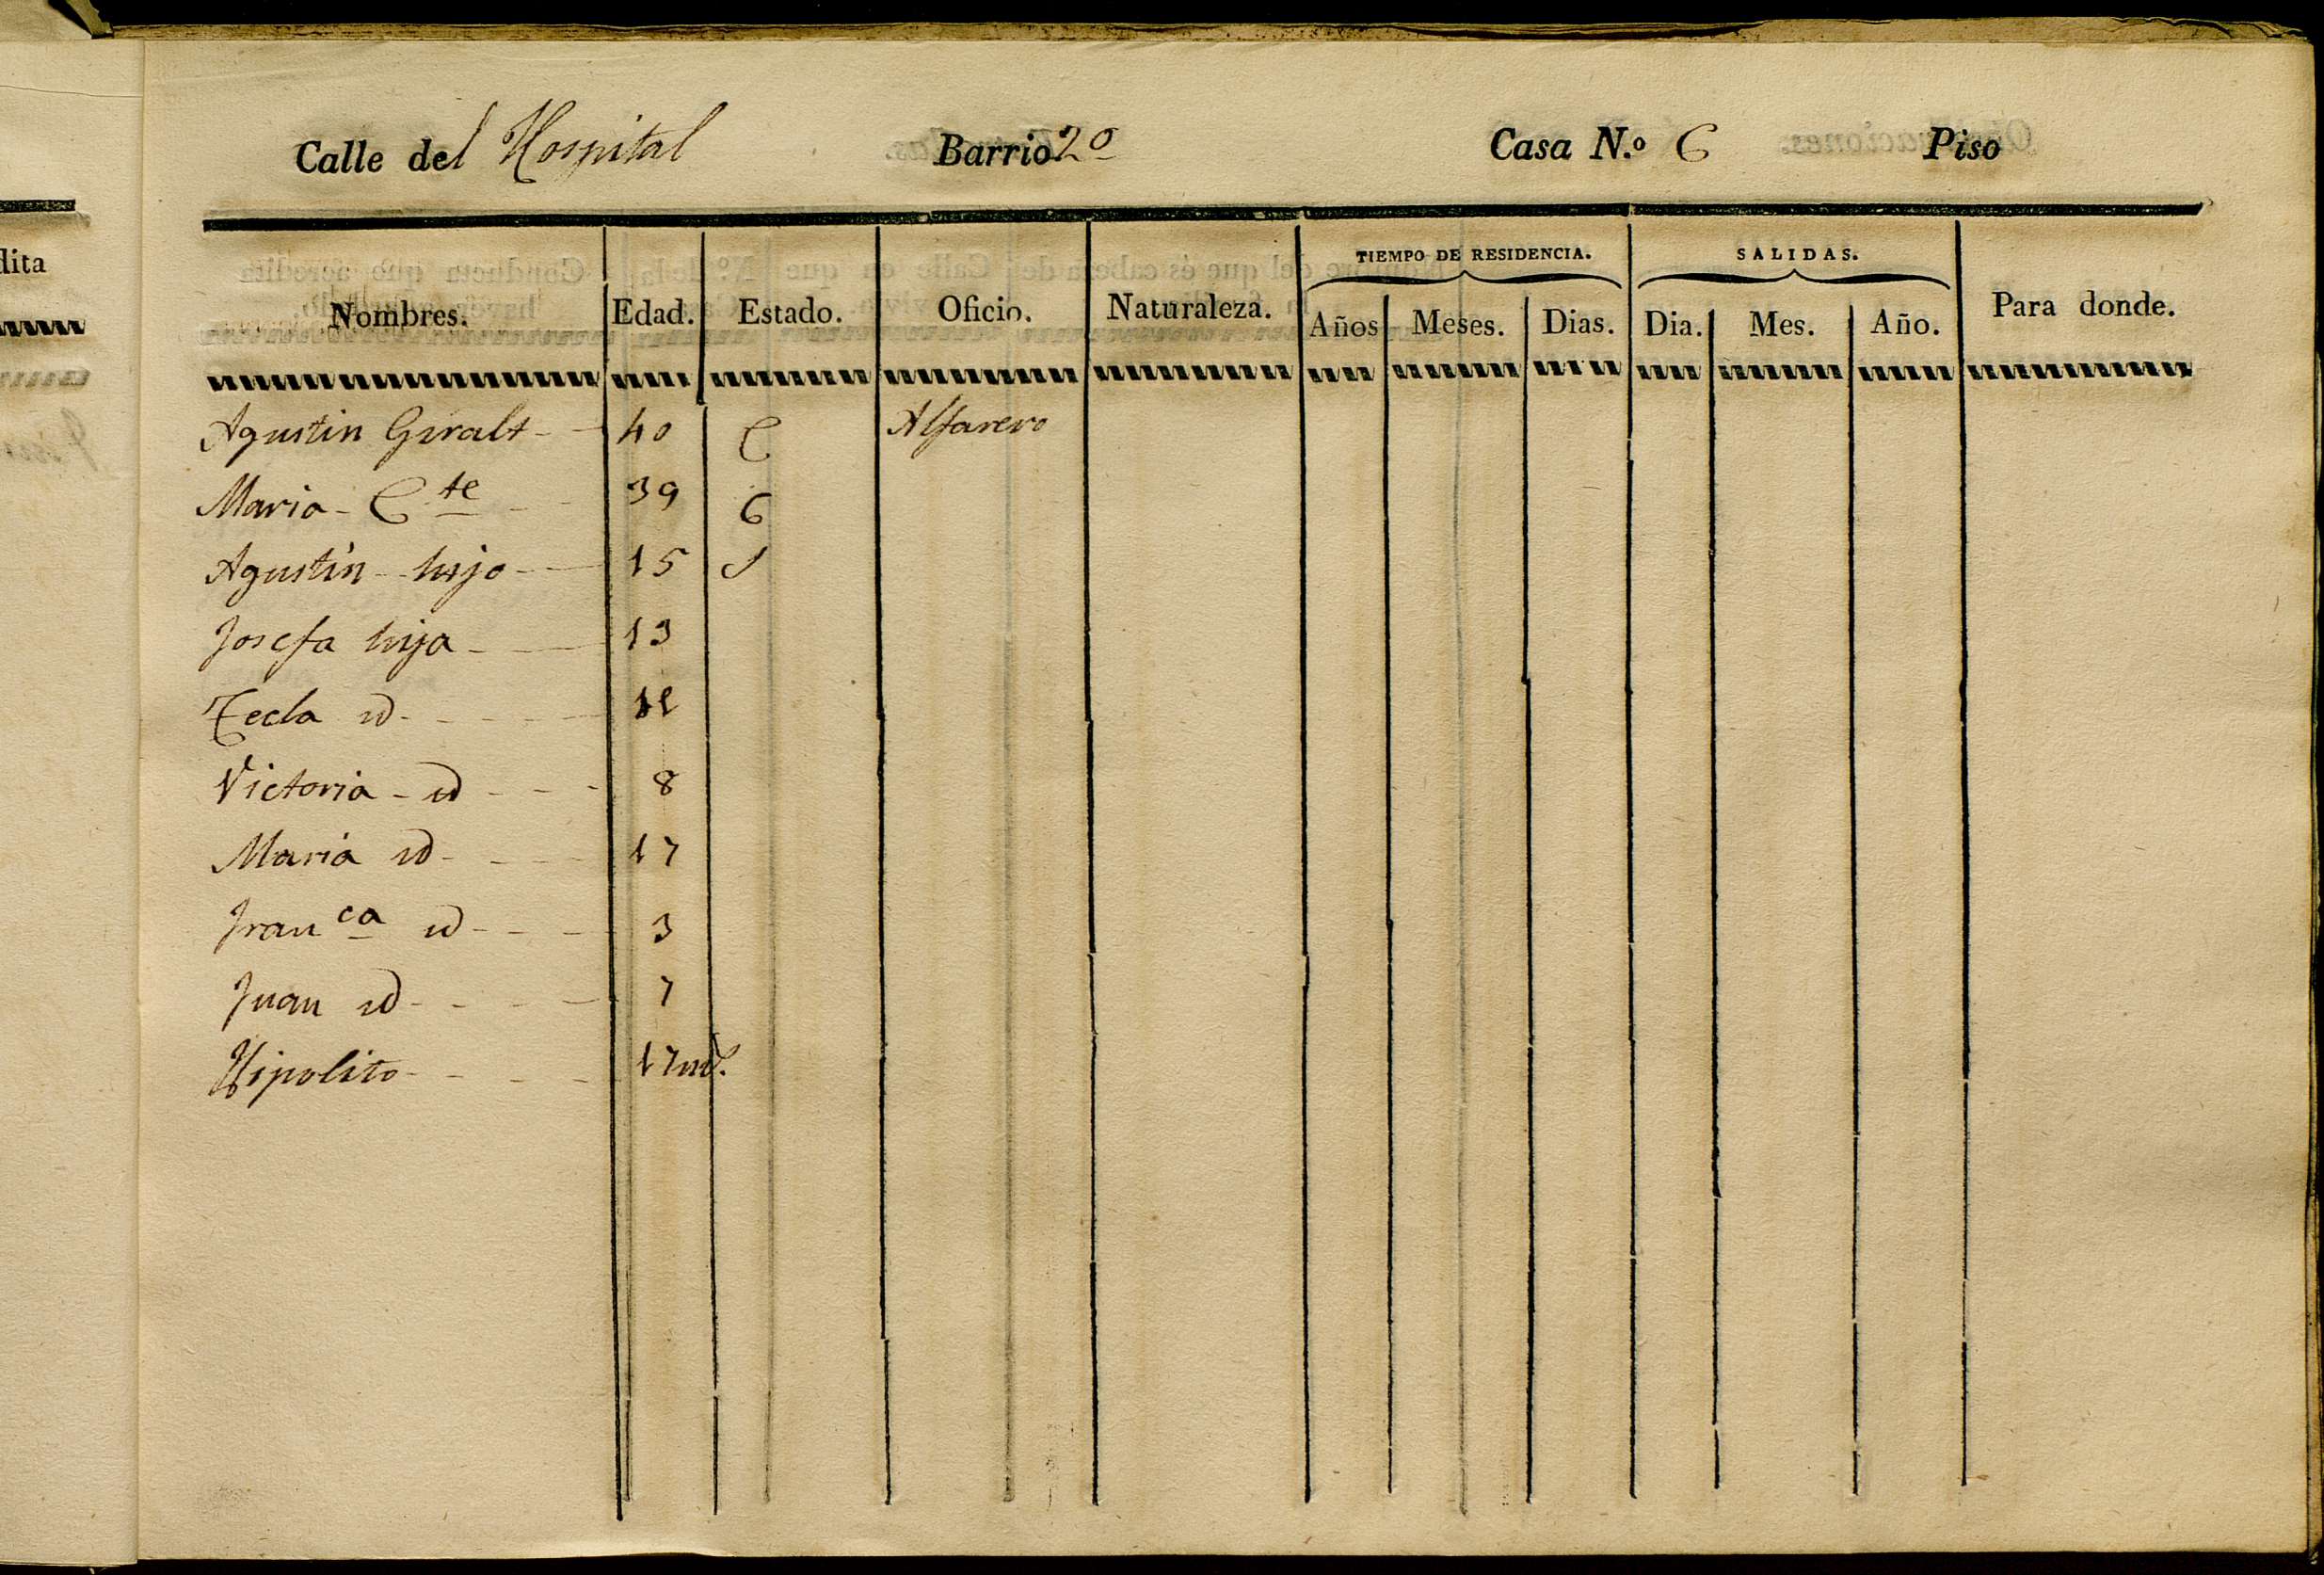 dita
Calle del Hospital Barrio 2º Casa N.º 6 Piso
TIEMPO DE RESIDENCIA. SALIDAS.
Nombres. Edad. Estado. Oficio. Naturaleza. Años Meses. Dias. Dia. Mes. Año. Para donde.
Agustin Giralt 40 C Alfarero
Maria - Cte 39 C
Agustin hijo 15 S
Josefa hija 13
Tecla id
Victoria - id 8
Maria id 17
Franca id 3
Juan id 7
Hipolito 17 ms.